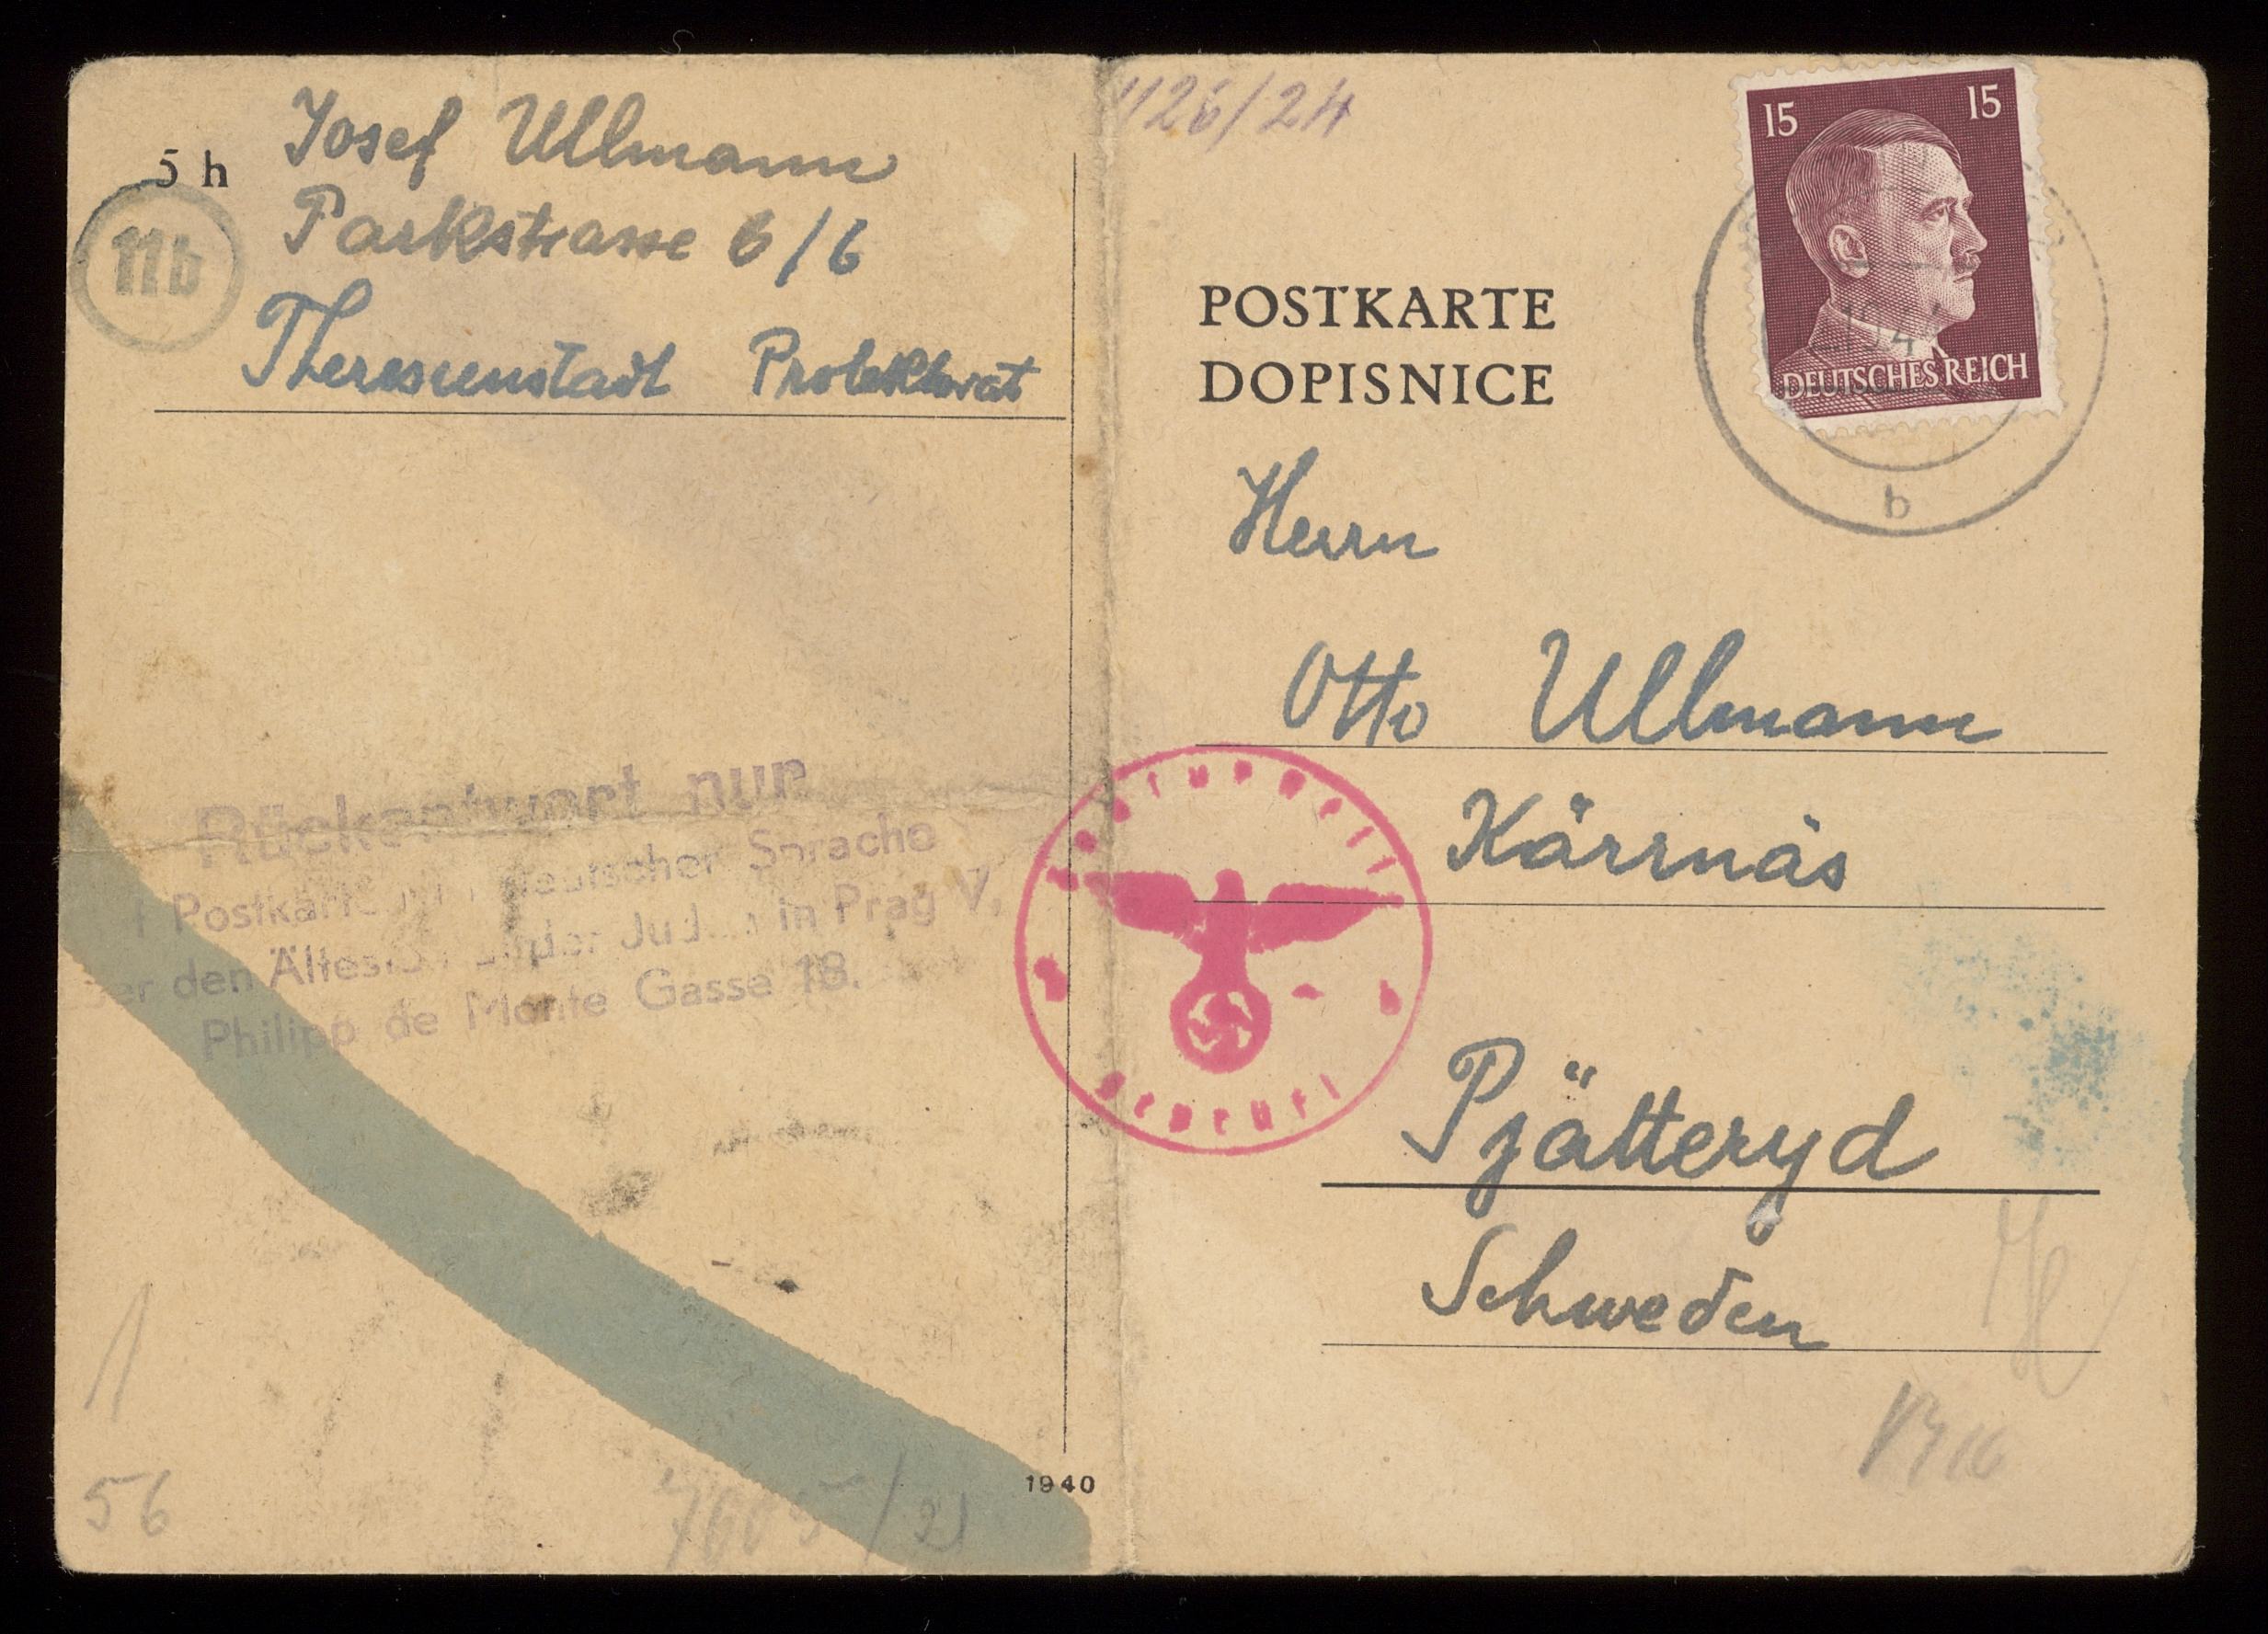 5 h
Josef Ullmann
Parkstrasse 6/6
Theresienstadt Protektorat
11b
1126/24
15 15
DEUTSCHES REICH
b
POSTKARTE
DOPISNICE
Herrn
Otto Ullmann
Kärrnäs
Pjätteryd
Schweden
Rückantwort nur
Postkarten in deutscher Sprache
den Ältesten der Juden in Prag V,
Philipp de Monte Gasse 18.
geprüft
56
1940